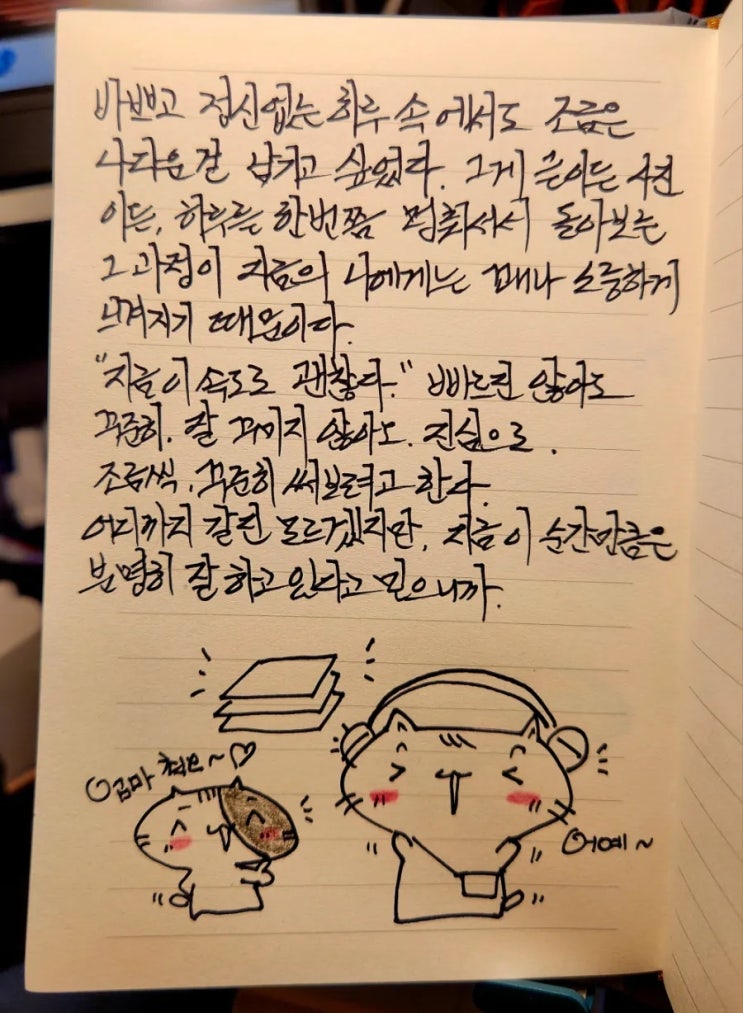 바쁘고 정신없는 하루 속에서도 조금은
나다운 걸 남기고 싶었다. 그게 글이든 사진
이든, 하루를 한번쯤 멈춰서서 돌아보는
그 과정이 지금의 나에게는 꽤나 소중하게
느껴지기 때문이다.
"지금 이 속도로 괜찮다." 빠르진 않아도
꾸준히. 잘 꾸미지 않아도. 진심으로.
조금씩. 꾸준히 써보려고 한다.
어디까지 갈진 모르겠지만, 지금 이 순간만큼은
분명히 잘 하고 있다고 믿으니까.
엄마 ~♡
어예~